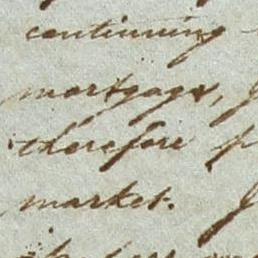 continuing
mortgage,
therefore
market.